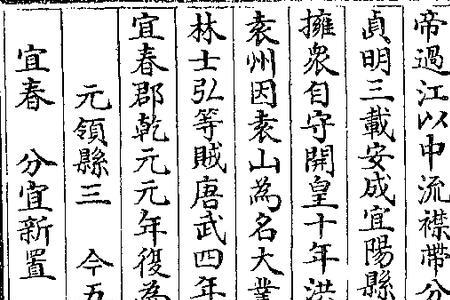 帝過江以中流襟帶分
貞明三載安成宜陽縣
擁衆自守開皇十年洪
袁州因袁山為名大業
林士弘等賊唐武四年
宜春郡乾元元年復為
元領縣三　今五
宜春　分宜新置